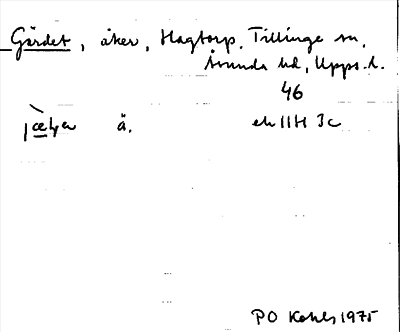 Gärdet, åker, Hagtorp, Tillinge sn,
Åsunda hd, Upps. l.
46
ä. ek 11H 3c
PO Kohls 1975